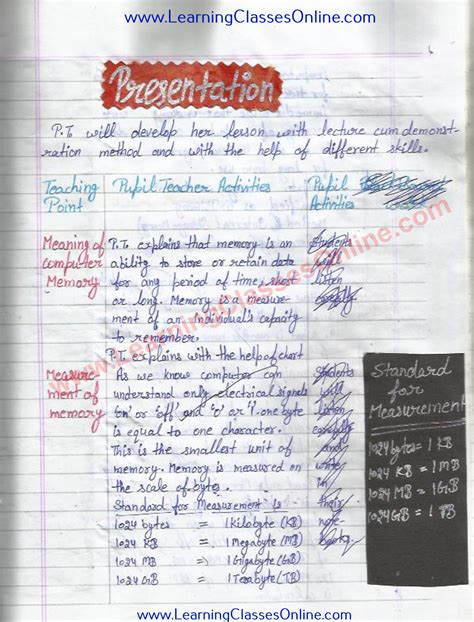 www.LearningClassesOnline.com
Presentation
P.T. will develop her lesson with lecture cum demonst-
ration method and with the help of different skills.
Teaching Point
Pupil Teacher Activities
Pupil Activities
Meaning of
computer
Memory
P.T. explains that memory is an
ability to store or retain data
for any period of time, short
or long. Memory is a measure-
ment of an individual's capacity
to remember.
Students
will
listen
carefully
Measure-
ment of
memory
P.T. explains with the help of chart
As we know computer can
understand only electrical signals
'on' or 'off' and '0' or '1'. one byte
is equal to one character.
This is the smallest unit of
memory. Memory is measured on
the scale of bytes.
Standard for Measurement is
1024 bytes = 1 Kilobyte (KB)
1024 KB = 1 Megabyte (MB)
1024 MB = 1 Gigabyte (GB)
1024 GB = 1 Terabyte (TB)
Students
will
listen
carefully
and
write
in
their
note-
books
Standard
for
Measurement
1024 bytes = 1 KB
1024 KB = 1 MB
1024 MB = 1 GB
1024 GB = 1 TB
www.LearningClassesOnline.com
www.LearningClassesOnline.com